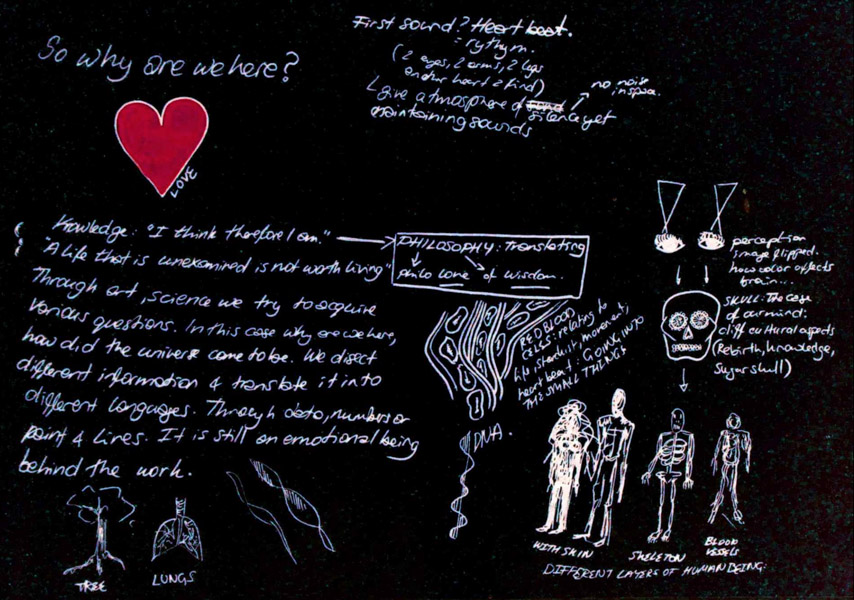 So why are we here?
LOVE
First sound? Heart beat.
= rythym.
(2 eyes, 2 arms, 2 legs
another heart 2 find)
Give atmosphere of silence yet
maintaining sounds
no noise
in space.
Knowledge: "I think therefore I am."
"A life that is unexamined is not worth living"
Through art, science we try to acquire
various questions. In this case why are we here,
how did the universe come to be. We disect
different information & translate it into
different languages. Through data, numbers or
paint & lines. It is still an emotional being
behind the work.
PHILOSOPHY: Translating
philo love of wisdom.
RED BLOOD
CELLS: relating to
life, movement,
heart beat. GOING INTO
THE SMALL THINGS
DNA.
perception
image flipped.
how color affects
brain...
SKULL: The case
of our mind:
diff cultural aspects
(Rebirth, knowledge,
Sugar skull)
TREE
LUNGS
WITH SKIN
SKELETON
BLOOD
VESSELS
DIFFERENT LAYERS OF HUMAN BEING.